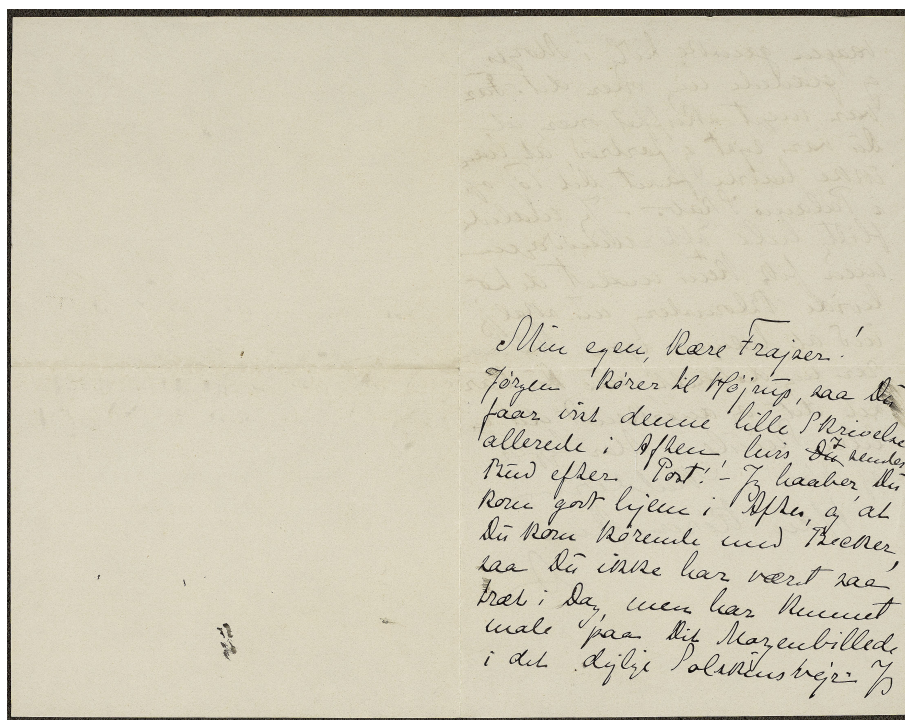 Min egen, kære Frajser!
Jørgen kører til Højrup, saa Du
faar vist denne lille Skrivelse
allerede i Aften, hvis I sender
Bud efter Post! - Jeg haaber, Du
kom godt hjem i Aftes, og at
Du kom kørende med Becker,
saa Du ikke har været saa
træt i Dag, men har kunnet
male paa Dit Morgenbillede
i det dejlige Solskinsvejr - Jeg